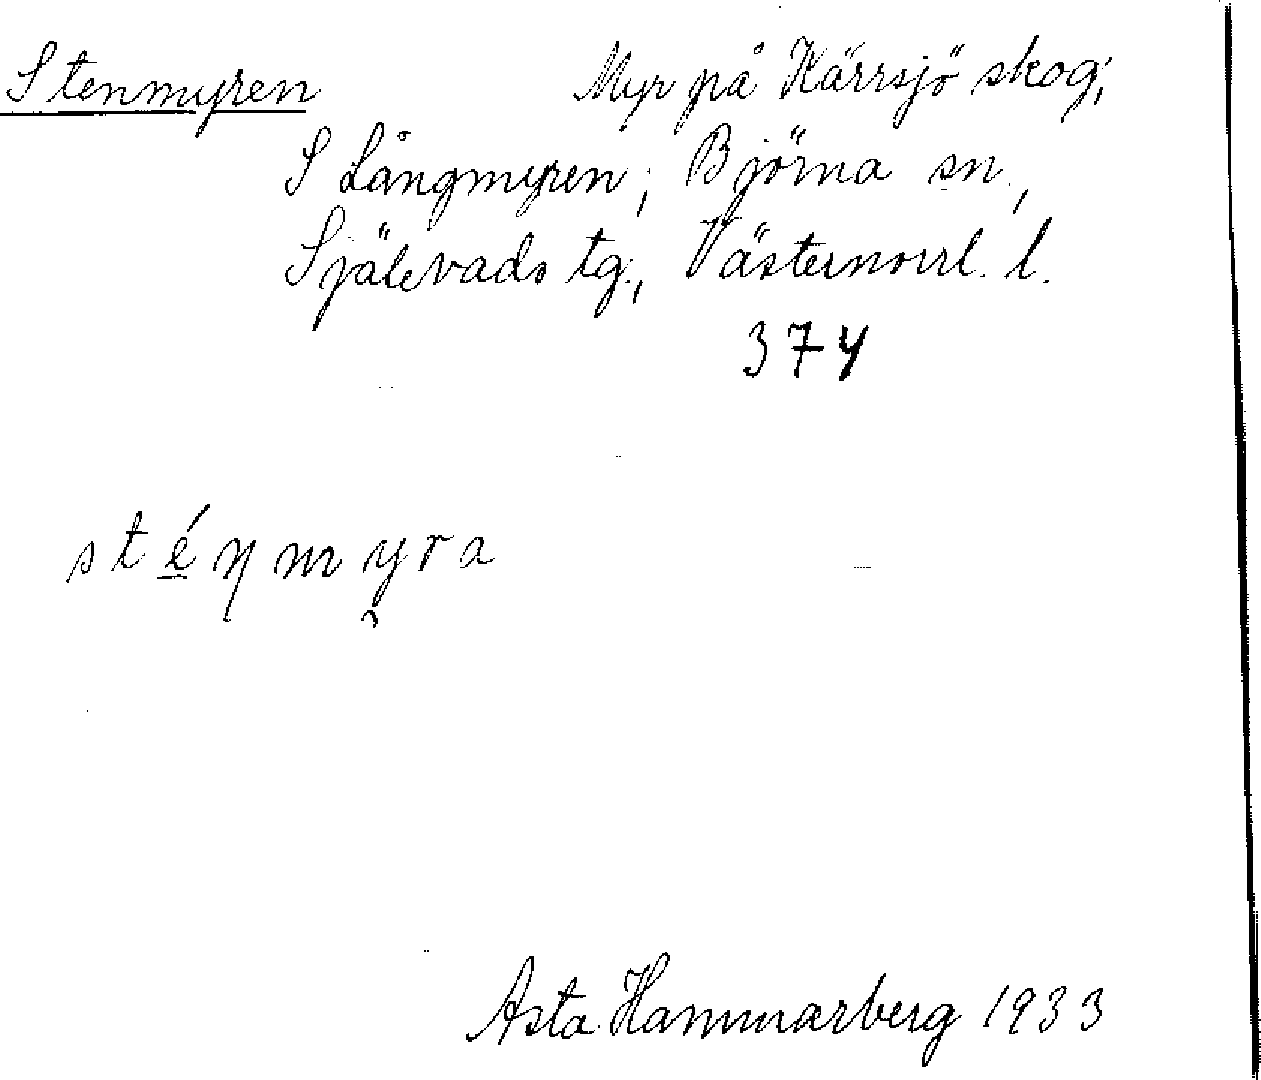 Stenmyren Myr på Kärrsjö skog;
S Långmyren; Björna sn,
Själevads tg., Västernorrl. l.
374
sténmyra
Asta Hammarberg 1933